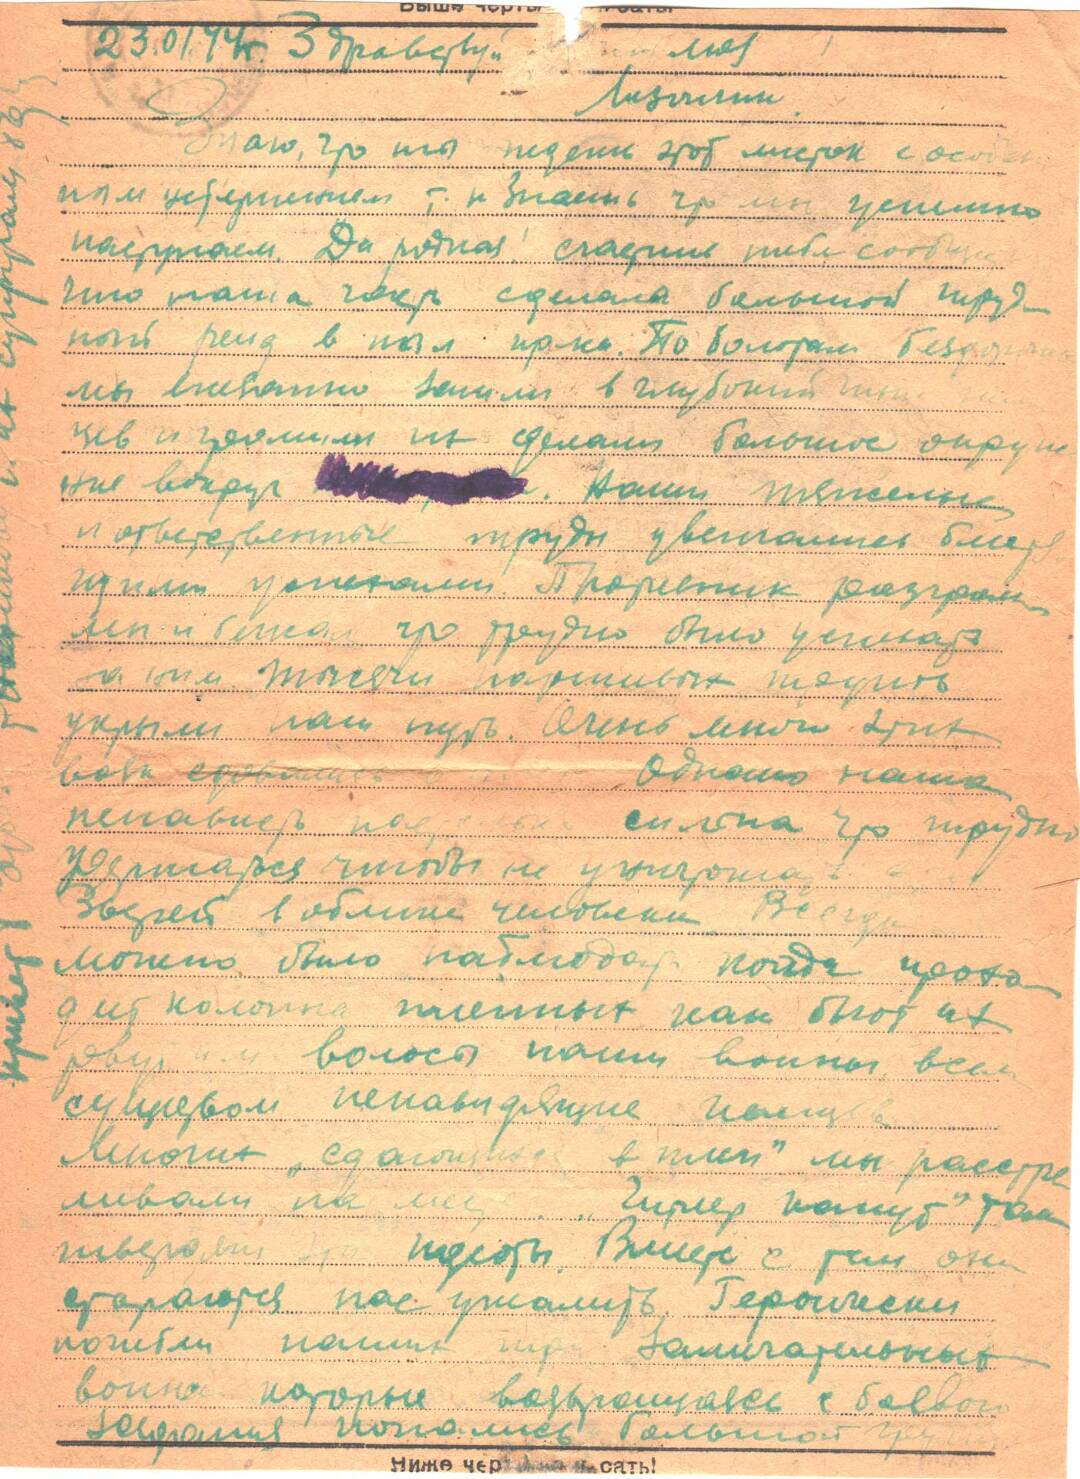 Выше черты не писать!
23.01.44г. Здравствуй моя
Знаю, что ты ждешь этот листок с особен
ным нетерпением т.к знаешь что мы успешно
наступаем. Да родная! счастлив тебе сообщить
что наша часть сделала большой труд
ный рейд в тыл врага. По болотам бездорожью
мы внезапно зашли в глубокий тыл
цев и громили их сделали большое окруже
ние вокруг . Наши тяжелые
и ответственные труды увенчались блестя
щими успехами. Противник разгром
лен и бежал что трудно было успевать
за ним. Тысячи паршивых
укрыли наш путь. Очень много этих
сдавались Однако наша
ненависть настолько сильна что трудно
удержаться чтобы не уничтожать
Зверей в облике человека. Всегда
можно было наблюдать когда прохо
дит колонна пленных как бьют их
рвут им волосы наши воины всем
существом ненавидящие немцев
Многих „сдающихся в плен" мы расстре
ливали на месте. „Гитлер капут" так
твердят эти идиоты. Вместе с тем они
стараются нас ужалить. Героически
погибли наших три замечательных
воина которые возвращаясь с боевого
задания попались большой группе
Ниже черты не писать!
привет